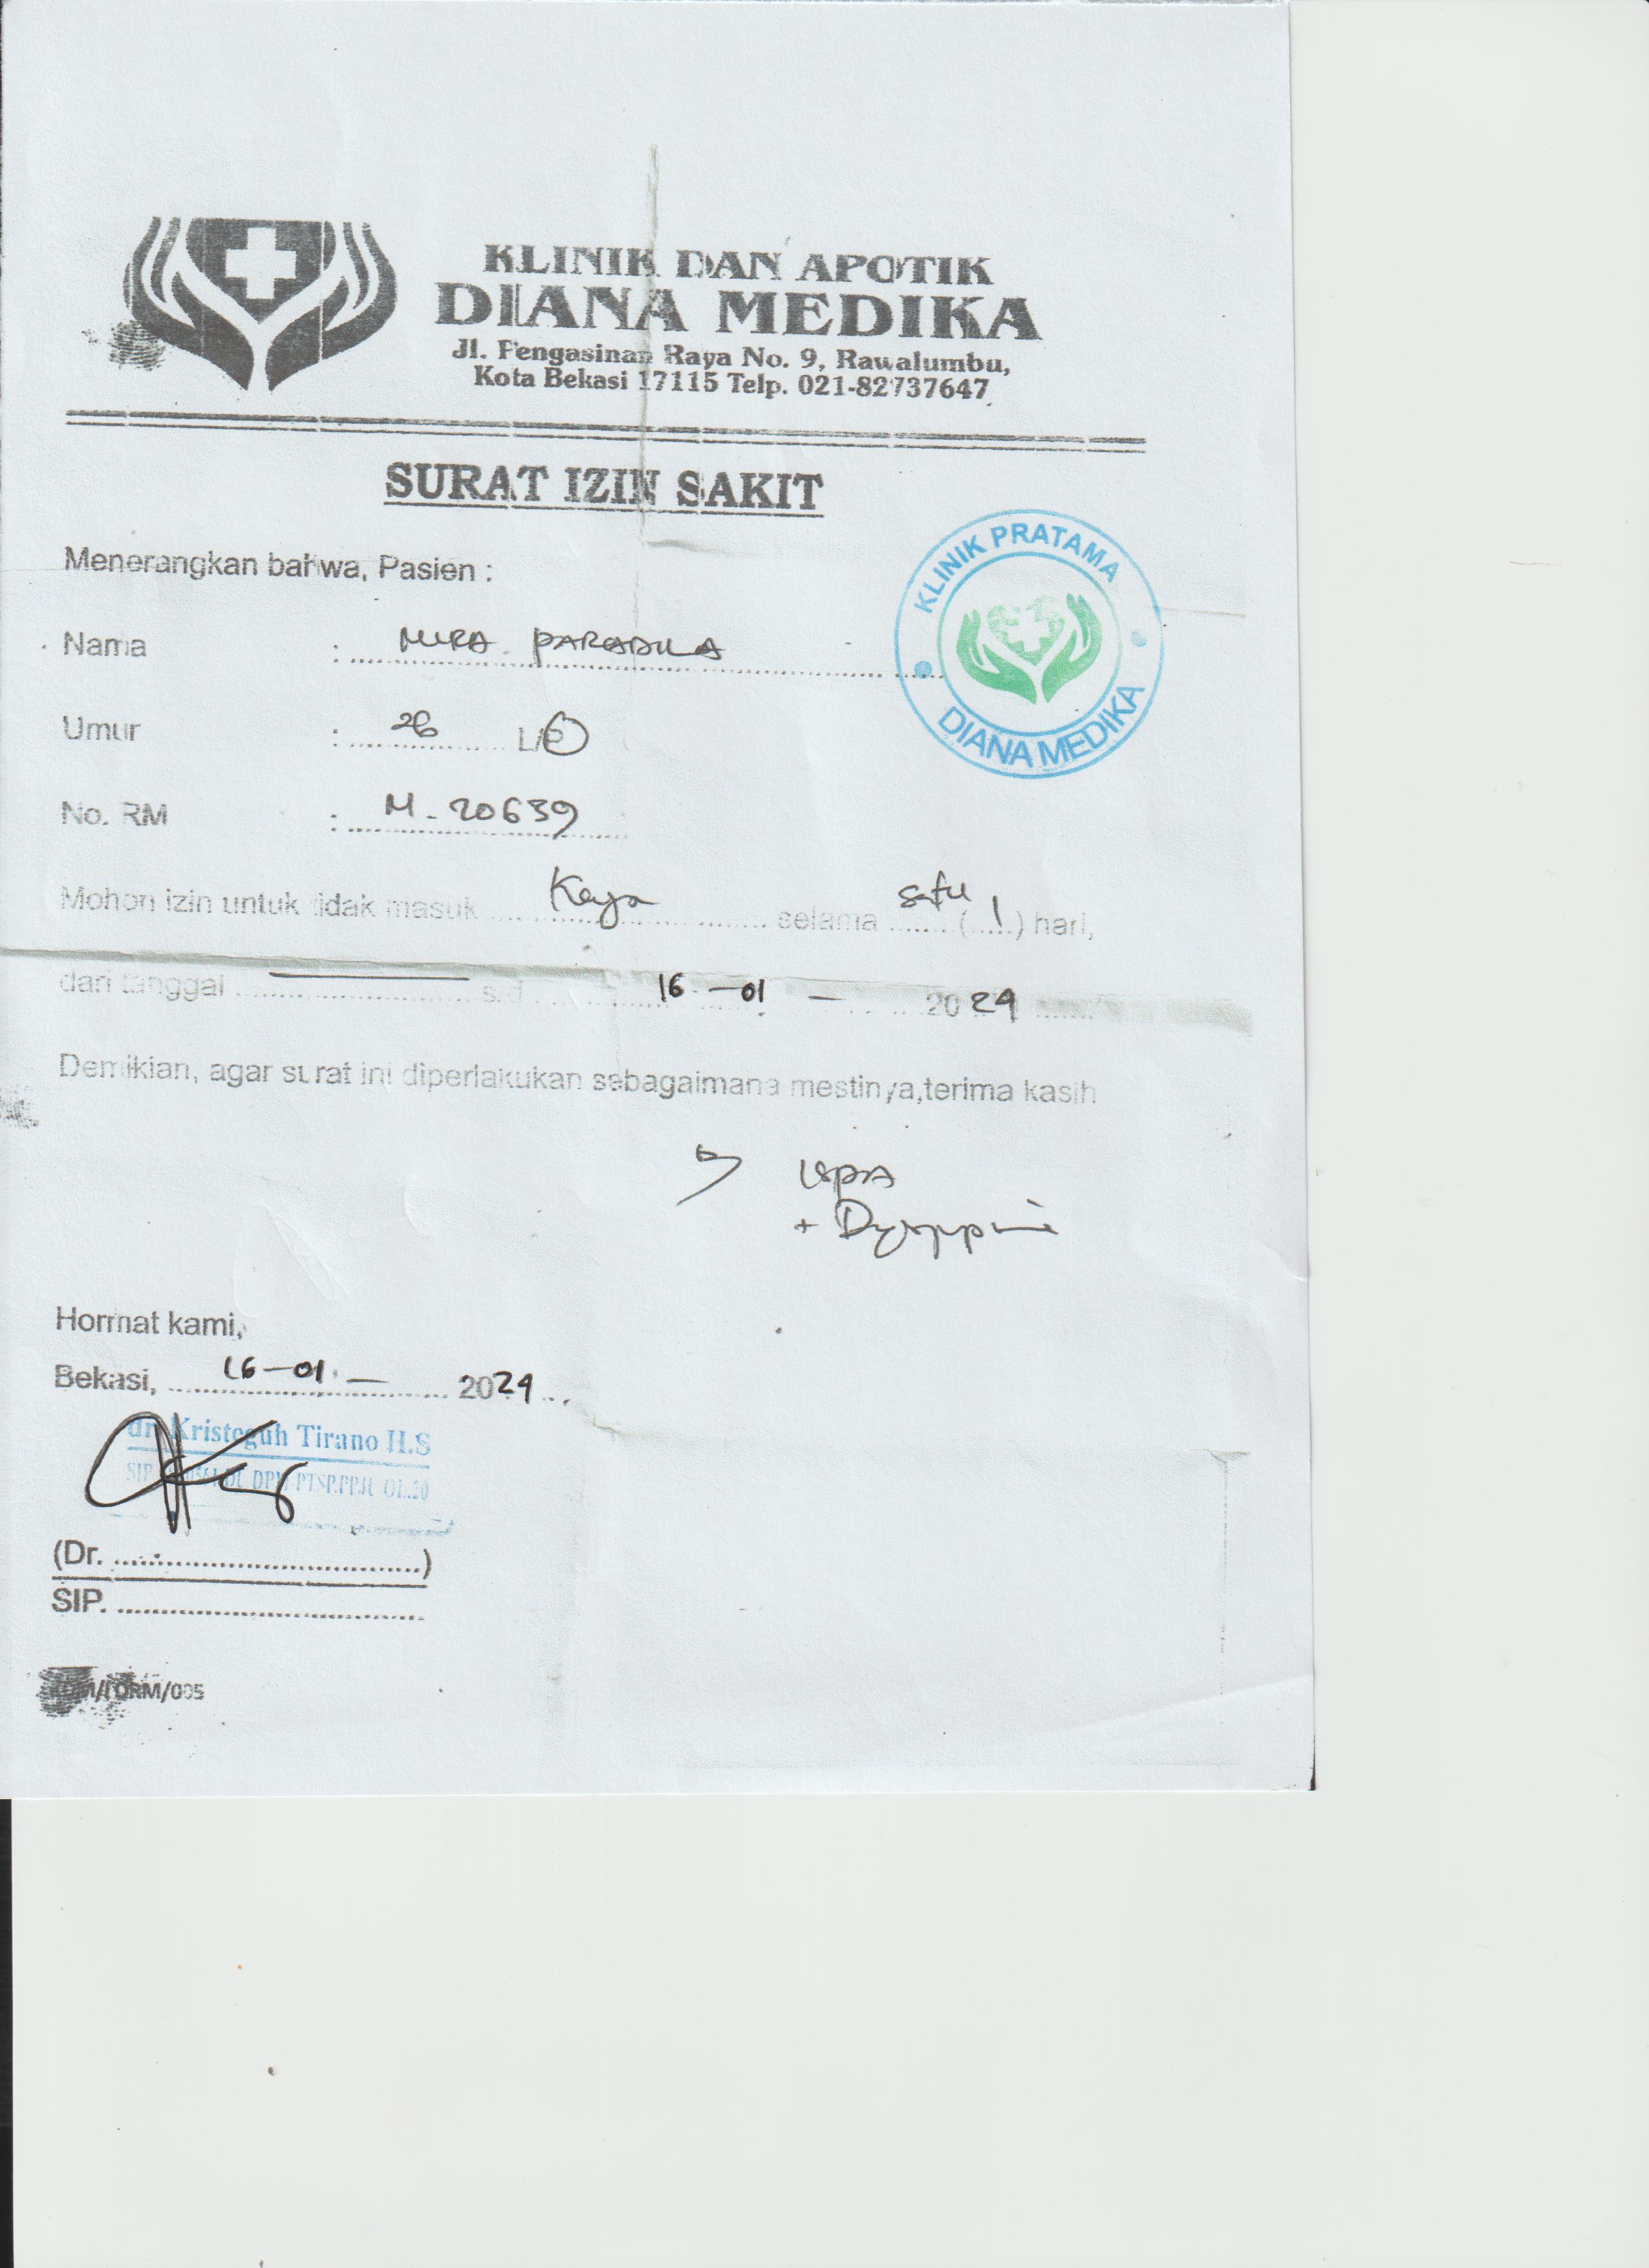 KLINIK DAN APOTIK
DIANA MEDIKA
Jl. Pengasinan Raya No. 9, Rawalumbu,
Kota Bekasi 17115 Telp. 021-82737647
SURAT IZIN SAKIT
KLINIK PRATAMA
DIANA MEDIKA
Menerangkan bahwa, Pasien :
Nama : PARADILA
Umur : 26 L/P
No. RM : M-20639
Mohon izin untuk tidak masuk Kerja selama satu (1) hari,
dari tanggal s.d 16-01-2024
Demikian, agar surat ini diperlakukan sebagaimana mestinya,terima kasih
ISPA
+ Dyspepsia
Hormat kami,
Bekasi, 16-01-2024
dr. Kristeguh Tirano H.S
SIP
(Dr. ..........................................)
SIP. ..........................................
/FORM/005